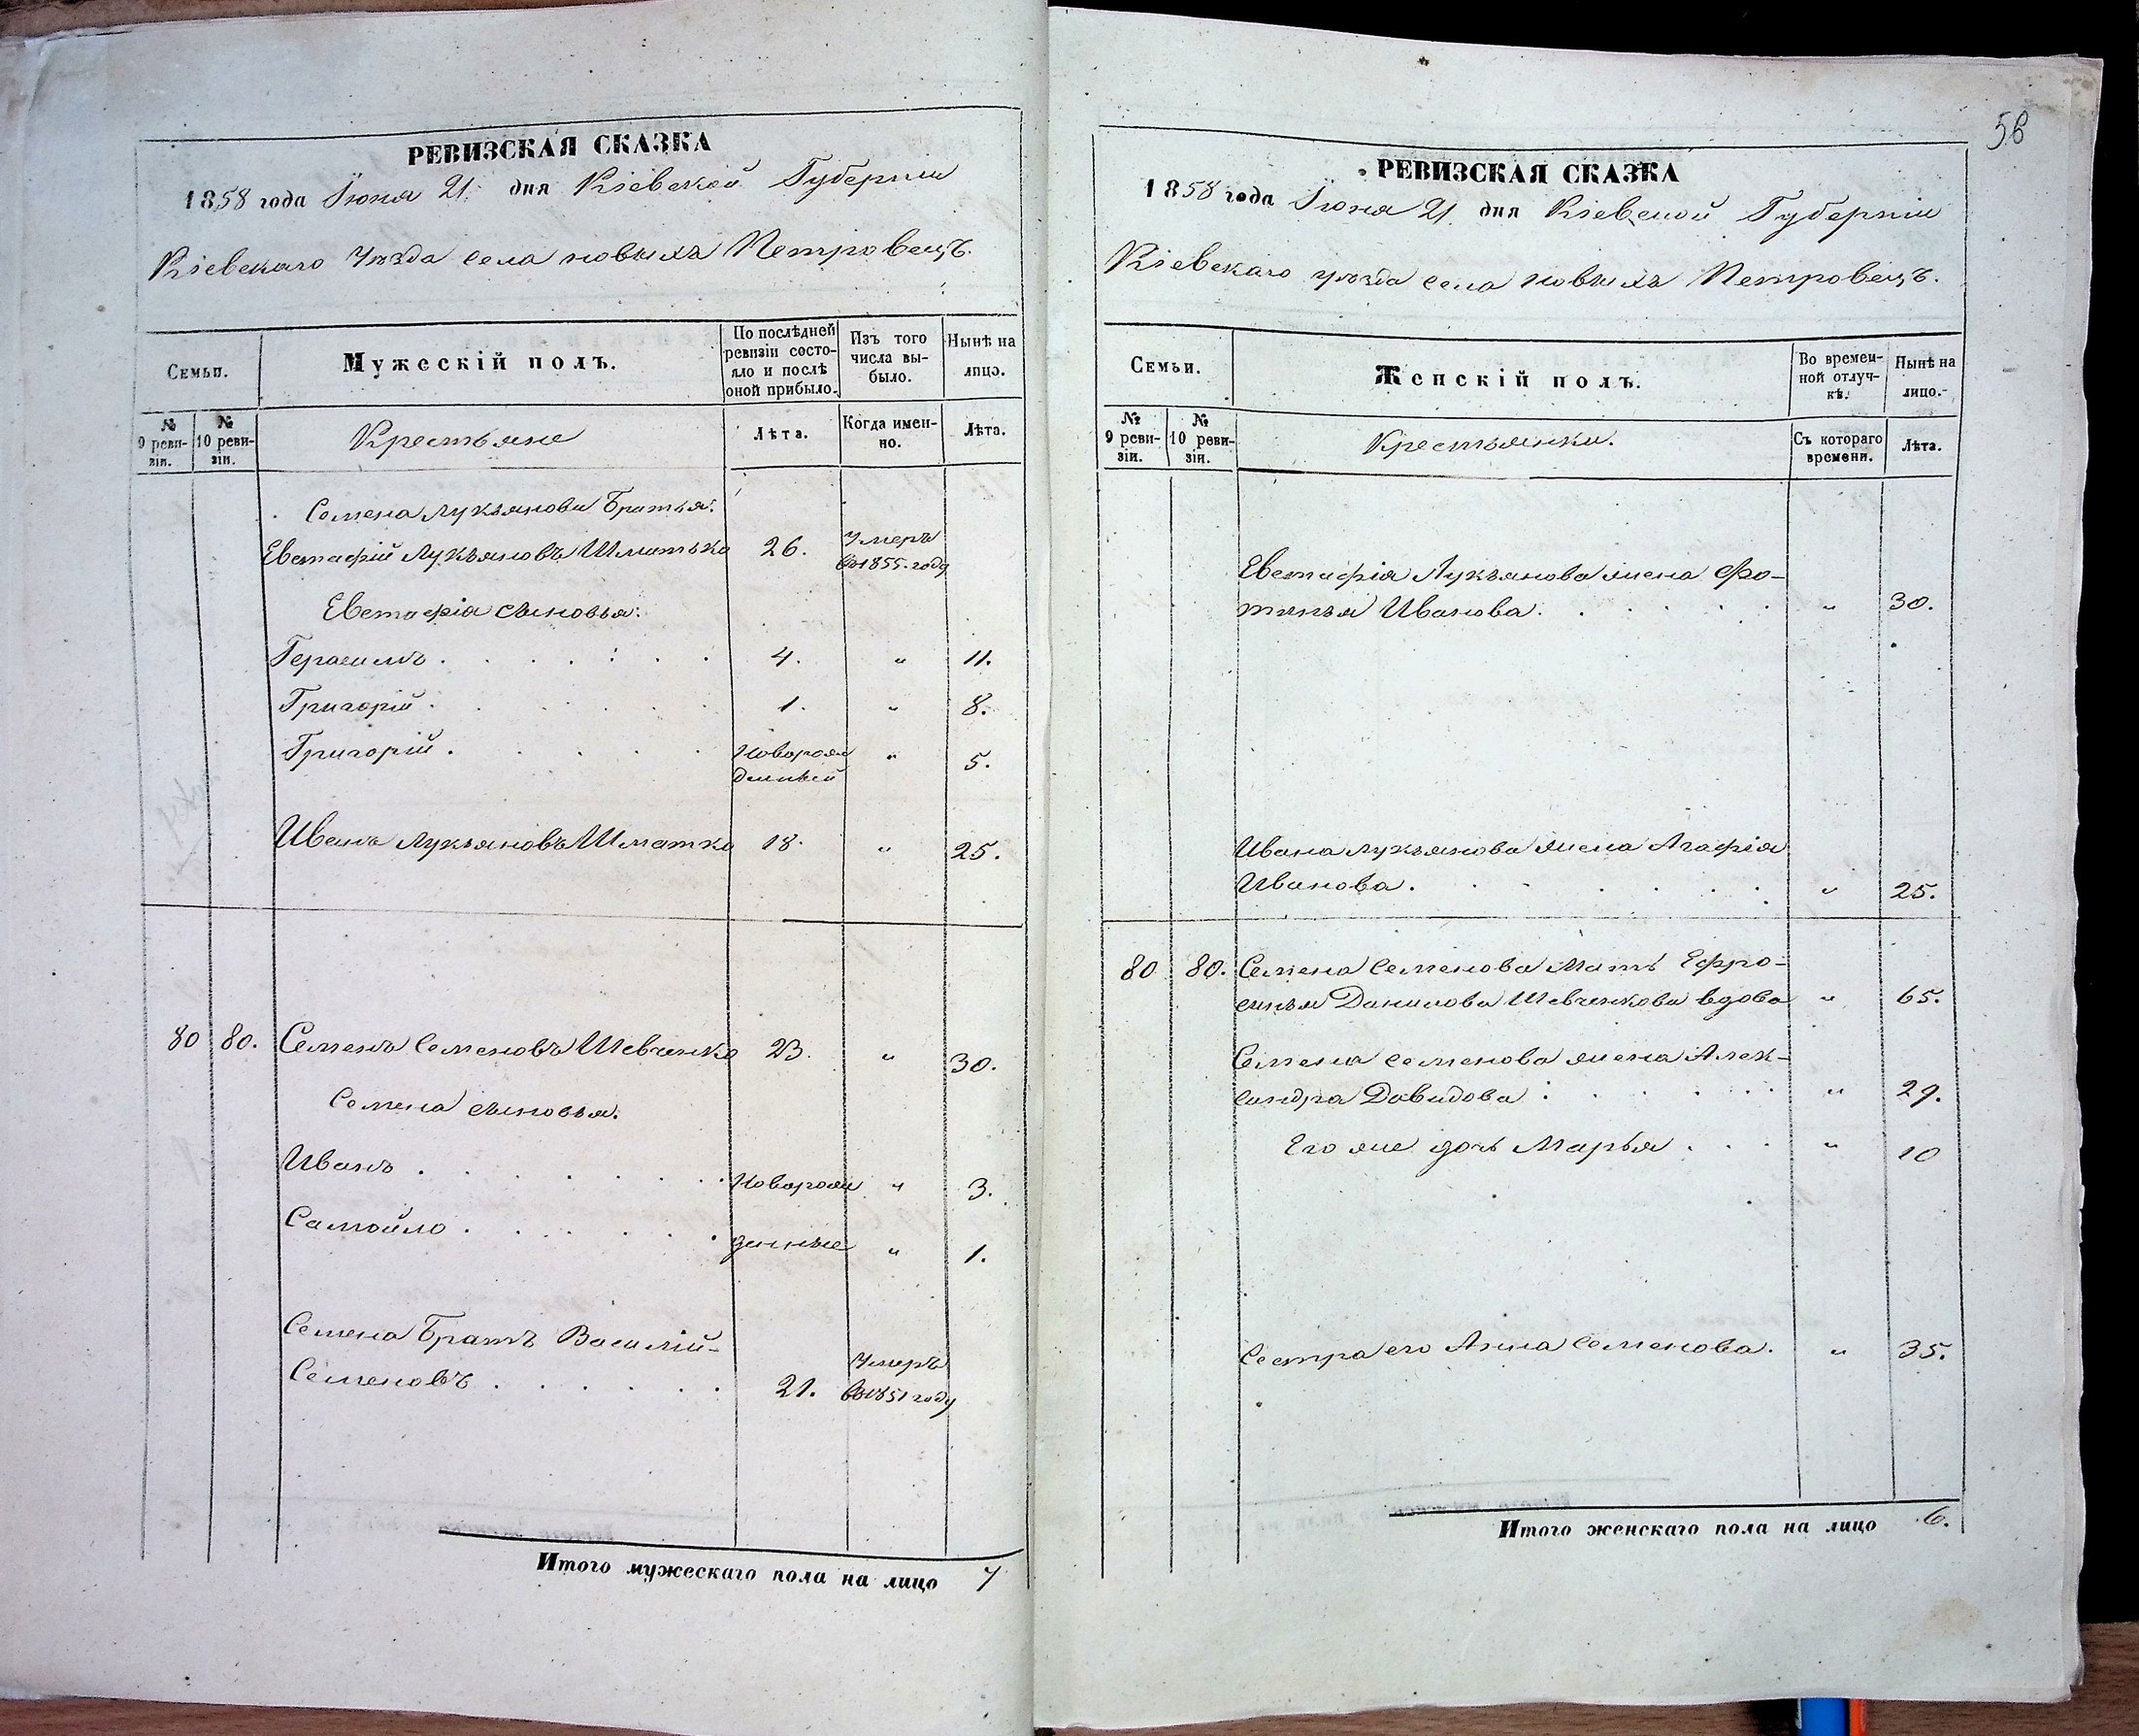 РЕВИЗСКАЯ СКАЗКА
1858 года Іюня 21 дня Кіевской Губерніи
Кіевскаго Уѣзда села новыхъ Петровецъ.
Семьи.
Мужескій полъ.
По послѣдней ревизіи состояло и послѣ оной прибыло.
Изъ того числа выбыло.
Нынѣ на лицо.
№ 9 ревизіи.
№ 10 ревизіи.
Крестьяне
Лѣта.
Когда именно.
Лѣта.
Семена Лукьянова Братья:
Евстафій Лукьяновъ Шматько 26. Умеръ въ 1855 году
Евстафія сыновья:
Герасимъ . . . . . . 4. " 11.
Григорій . . . . . . 1. " 8.
Григорій . . . . . новорожденный " 5.
Иванъ Лукьяновъ Шматко 18. " 25.
80 80. Семенъ Семеновъ Шевченко 23. " 30.
Семена сыновья.
Иванъ . . . . . . . новорож " 3.
Самойло . . . . . . денные " 1.
Семена Братъ Василій
Семеновъ . . . . . . 21. Умеръ въ 1851 году
Итого мужескаго пола на лицо 7
58
РЕВИЗСКАЯ СКАЗКА
1858 года Іюня 21 дня Кіевской Губерніи
Кіевскаго уѣзда села новыхъ Петровецъ.
Семьи.
Женскій полъ.
Во временной отлучкѣ.
Нынѣ на лицо.
№ 9 ревизіи.
№ 10 ревизіи.
Крестьянки.
Съ котораго времени.
Лѣта.
Евстафія Лукьянова жена Фо-
тинья Иванова . . . . . " 30.
Ивана Лукьянова жена Агафія
Иванова . . . . . . " 25.
80 80. Семена Семенова Мать Ефро-
синья Данилова Шевченкова вдова " 65.
Семена Семенова жена Алек-
сандра Давидова . . . . . " 29.
Его же дочь Марья . . . " 10
Сестра его Анна Семенова. " 35.
Итого женскаго пола на лицо 6.